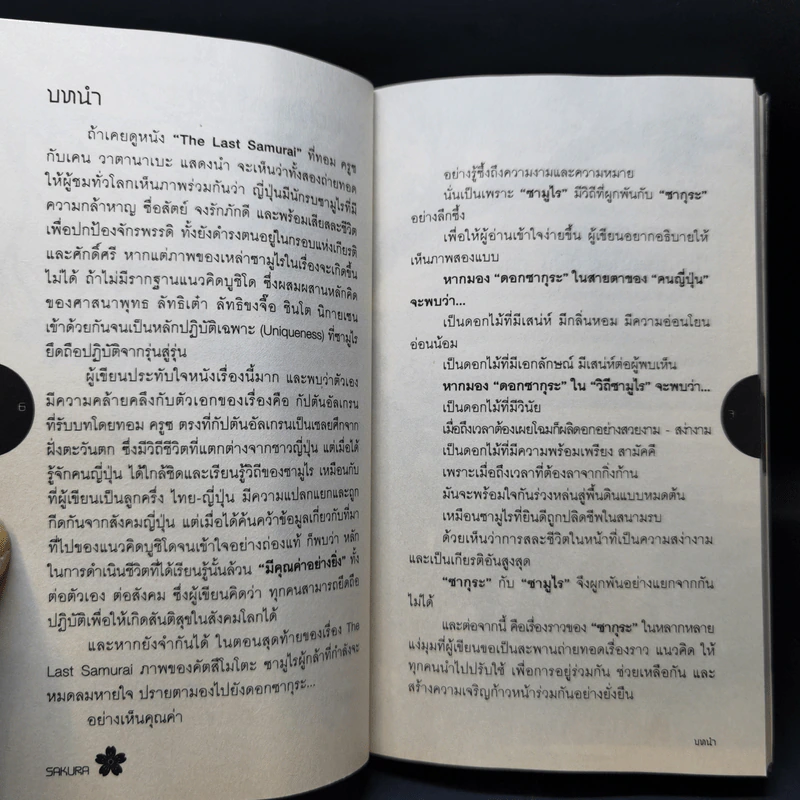 บทนำ
ถ้าเคยดูหนัง “The Last Samurai” ที่ทอม ครูซ
กับเคน วาตานาเบะ แสดงนำ จะเห็นว่าทั้งสองถ่ายทอด
ให้ผู้ชมทั่วโลกเห็นภาพร่วมกันว่า ญี่ปุ่นมีนักรบซามูไรที่มี
ความกล้าหาญ ซื่อสัตย์ จงรักภักดี และพร้อมเสียสละชีวิต
เพื่อปกป้องจักรพรรดิ ทั้งยังดำรงตนอยู่ในกรอบแห่งเกียรติ
และศักดิ์ศรี หากแต่ภาพของเหล่าซามูไรในเรื่องจะเกิดขึ้น
ไม่ได้ ถ้าไม่มีรากฐานแนวคิดบูชิโด ซึ่งผสมผสานหลักคิด
ของศาสนาพุทธ ลัทธิเต๋า ลัทธิขงจื๊อ ชินโต นิกายเซน
เข้าด้วยกันจนเป็นหลักปฏิบัติเฉพาะ (Uniqueness) ที่ซามูไร
ยึดถือปฏิบัติจากรุ่นสู่รุ่น
ผู้เขียนประทับใจหนังเรื่องนี้มาก และพบว่าตัวเอง
มีความคล้ายคลึงกับตัวเอกของเรื่องคือ กัปตันอัลเกรน
ที่รับบทโดยทอม ครูซ ตรงที่กัปตันอัลเกรนเป็นเชลยศึกจาก
ฝั่งตะวันตก ซึ่งมีวิถีชีวิตที่แตกต่างจากชาวญี่ปุ่น แต่เมื่อได้
รู้จักคนญี่ปุ่น ได้ใกล้ชิดและเรียนรู้วิถีของซามูไร เหมือนกับ
ที่ผู้เขียนเป็นลูกครึ่ง ไทย-ญี่ปุ่น มีความแปลกแยกและถูก
กีดกันจากสังคมญี่ปุ่น แต่เมื่อได้ค้นคว้าข้อมูลเกี่ยวกับที่มา
ที่ไปของแนวคิดบูชิโดจนเข้าใจอย่างถ่องแท้ ก็พบว่า หลัก
ในการดำเนินชีวิตที่ได้เรียนรู้นั้นล้วน “มีคุณค่าอย่างยิ่ง” ทั้ง
ต่อตัวเอง ต่อสังคม ซึ่งผู้เขียนคิดว่า ทุกคนสามารถยึดถือ
ปฏิบัติเพื่อให้เกิดสันติสุขในสังคมโลกได้
และหากยังจำกันได้ ในตอนสุดท้ายของเรื่อง The
Last Samurai ภาพของคัตสึโมโตะ ซามูไรผู้กล้าที่กำลังจะ
หมดลมหายใจ ปรายตามองไปยังดอกซากุระ...
อย่างเห็นคุณค่า
SAKURA
6
อย่างรู้ซึ้งถึงความงามและความหมาย
นั่นเป็นเพราะ “ซามูไร” มีวิถีที่ผูกพันกับ “ซากุระ”
อย่างลึกซึ้ง
เพื่อให้ผู้อ่านเข้าใจง่ายขึ้น ผู้เขียนอยากอธิบายให้
เห็นภาพสองแบบ
หากมอง “ดอกซากุระ” ในสายตาของ “คนญี่ปุ่น”
จะพบว่า...
เป็นดอกไม้ที่มีเสน่ห์ มีกลิ่นหอม มีความอ่อนโยน
อ่อนน้อม
เป็นดอกไม้ที่มีเอกลักษณ์ มีเสน่ห์ต่อผู้พบเห็น
หากมอง “ดอกซากุระ” ใน “วิถีซามูไร” จะพบว่า...
เป็นดอกไม้ที่มีวินัย
เมื่อถึงเวลาต้องเผยโฉมก็ผลิดอกอย่างสวยงาม - สง่างาม
เป็นดอกไม้ที่มีความพร้อมเพรียง สามัคคี
เพราะเมื่อถึงเวลาที่ต้องลาจากกิ่งก้าน
มันจะพร้อมใจกันร่วงหล่นสู่พื้นดินแบบหมดต้น
เหมือนซามูไรที่ยินดีถูกปลิดชีพในสนามรบ
ด้วยเห็นว่าการสละชีวิตในหน้าที่เป็นความสง่างาม
และเป็นเกียรติอันสูงสุด
“ซากุระ” กับ “ซามูไร” จึงผูกพันอย่างแยกจากกัน
ไม่ได้
และต่อจากนี้ คือเรื่องราวของ “ซากุระ” ในหลากหลาย
แง่มุมที่ผู้เขียนขอเป็นสะพานถ่ายทอดเรื่องราว แนวคิด ให้
ทุกคนนำไปปรับใช้ เพื่อการอยู่ร่วมกัน ช่วยเหลือกัน และ
สร้างความเจริญก้าวหน้าร่วมกันอย่างยั่งยืน
บทนำ